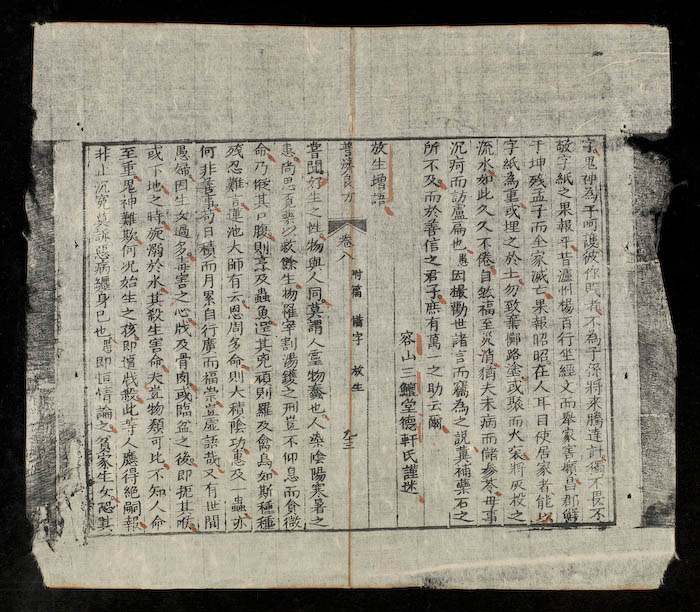 字鬼神為于呵護彼你既我不為子孫將來騰達計獨不畏不
敬字紙之果報乎昔瀘州楊百行坐經文而舉家害癩昌郡鮮
于坤殘孟子而全家滅亡果報昭昭在人耳目使居家者能以
字紙為重或埋之於土勿致棄擲路塗或聚而火突將灰投之
流水如此久久不倦自然福至災消猶夫未病而儲參苓毋事
沉疴而訪盧扁也愚因撮勸世諸言而竊為之說冀補藥石之
所不及而於善信之君子庶有萬一之助云爾
容山三鱣堂德軒氏謹述
放生增語
普濟良方
卷八
附篇 惜字 放生
九三
嘗聞好生之性物與人同莫謂人靈物蠢也人樂陰陽寒暑之
患尚思買藥以救餘生物罹宰割湯鑊之刑豈不仰息而貪微
命乃儂其口腹則烹及蟲魚逞其兇頑則羅及禽鳥如斯種種
殘忍難言蓮池大師有云恩周多命則大積陰功惠及一蟲亦
何非善事苟日積而月累自行廣而福崇豈虛語哉又有世間
愚婦因生女過多毒害之心戕及骨肉或臨盆之後即扼其喉
或下地之時旋溺於水其殺生害命夫豈物類可比不知人命
至重鬼神難欺何况始生之孩即遭戕殺此等人應得絕嗣報
非止沉冤莫訴惡病纏身已也愚即恒情論之貧家生女恐其